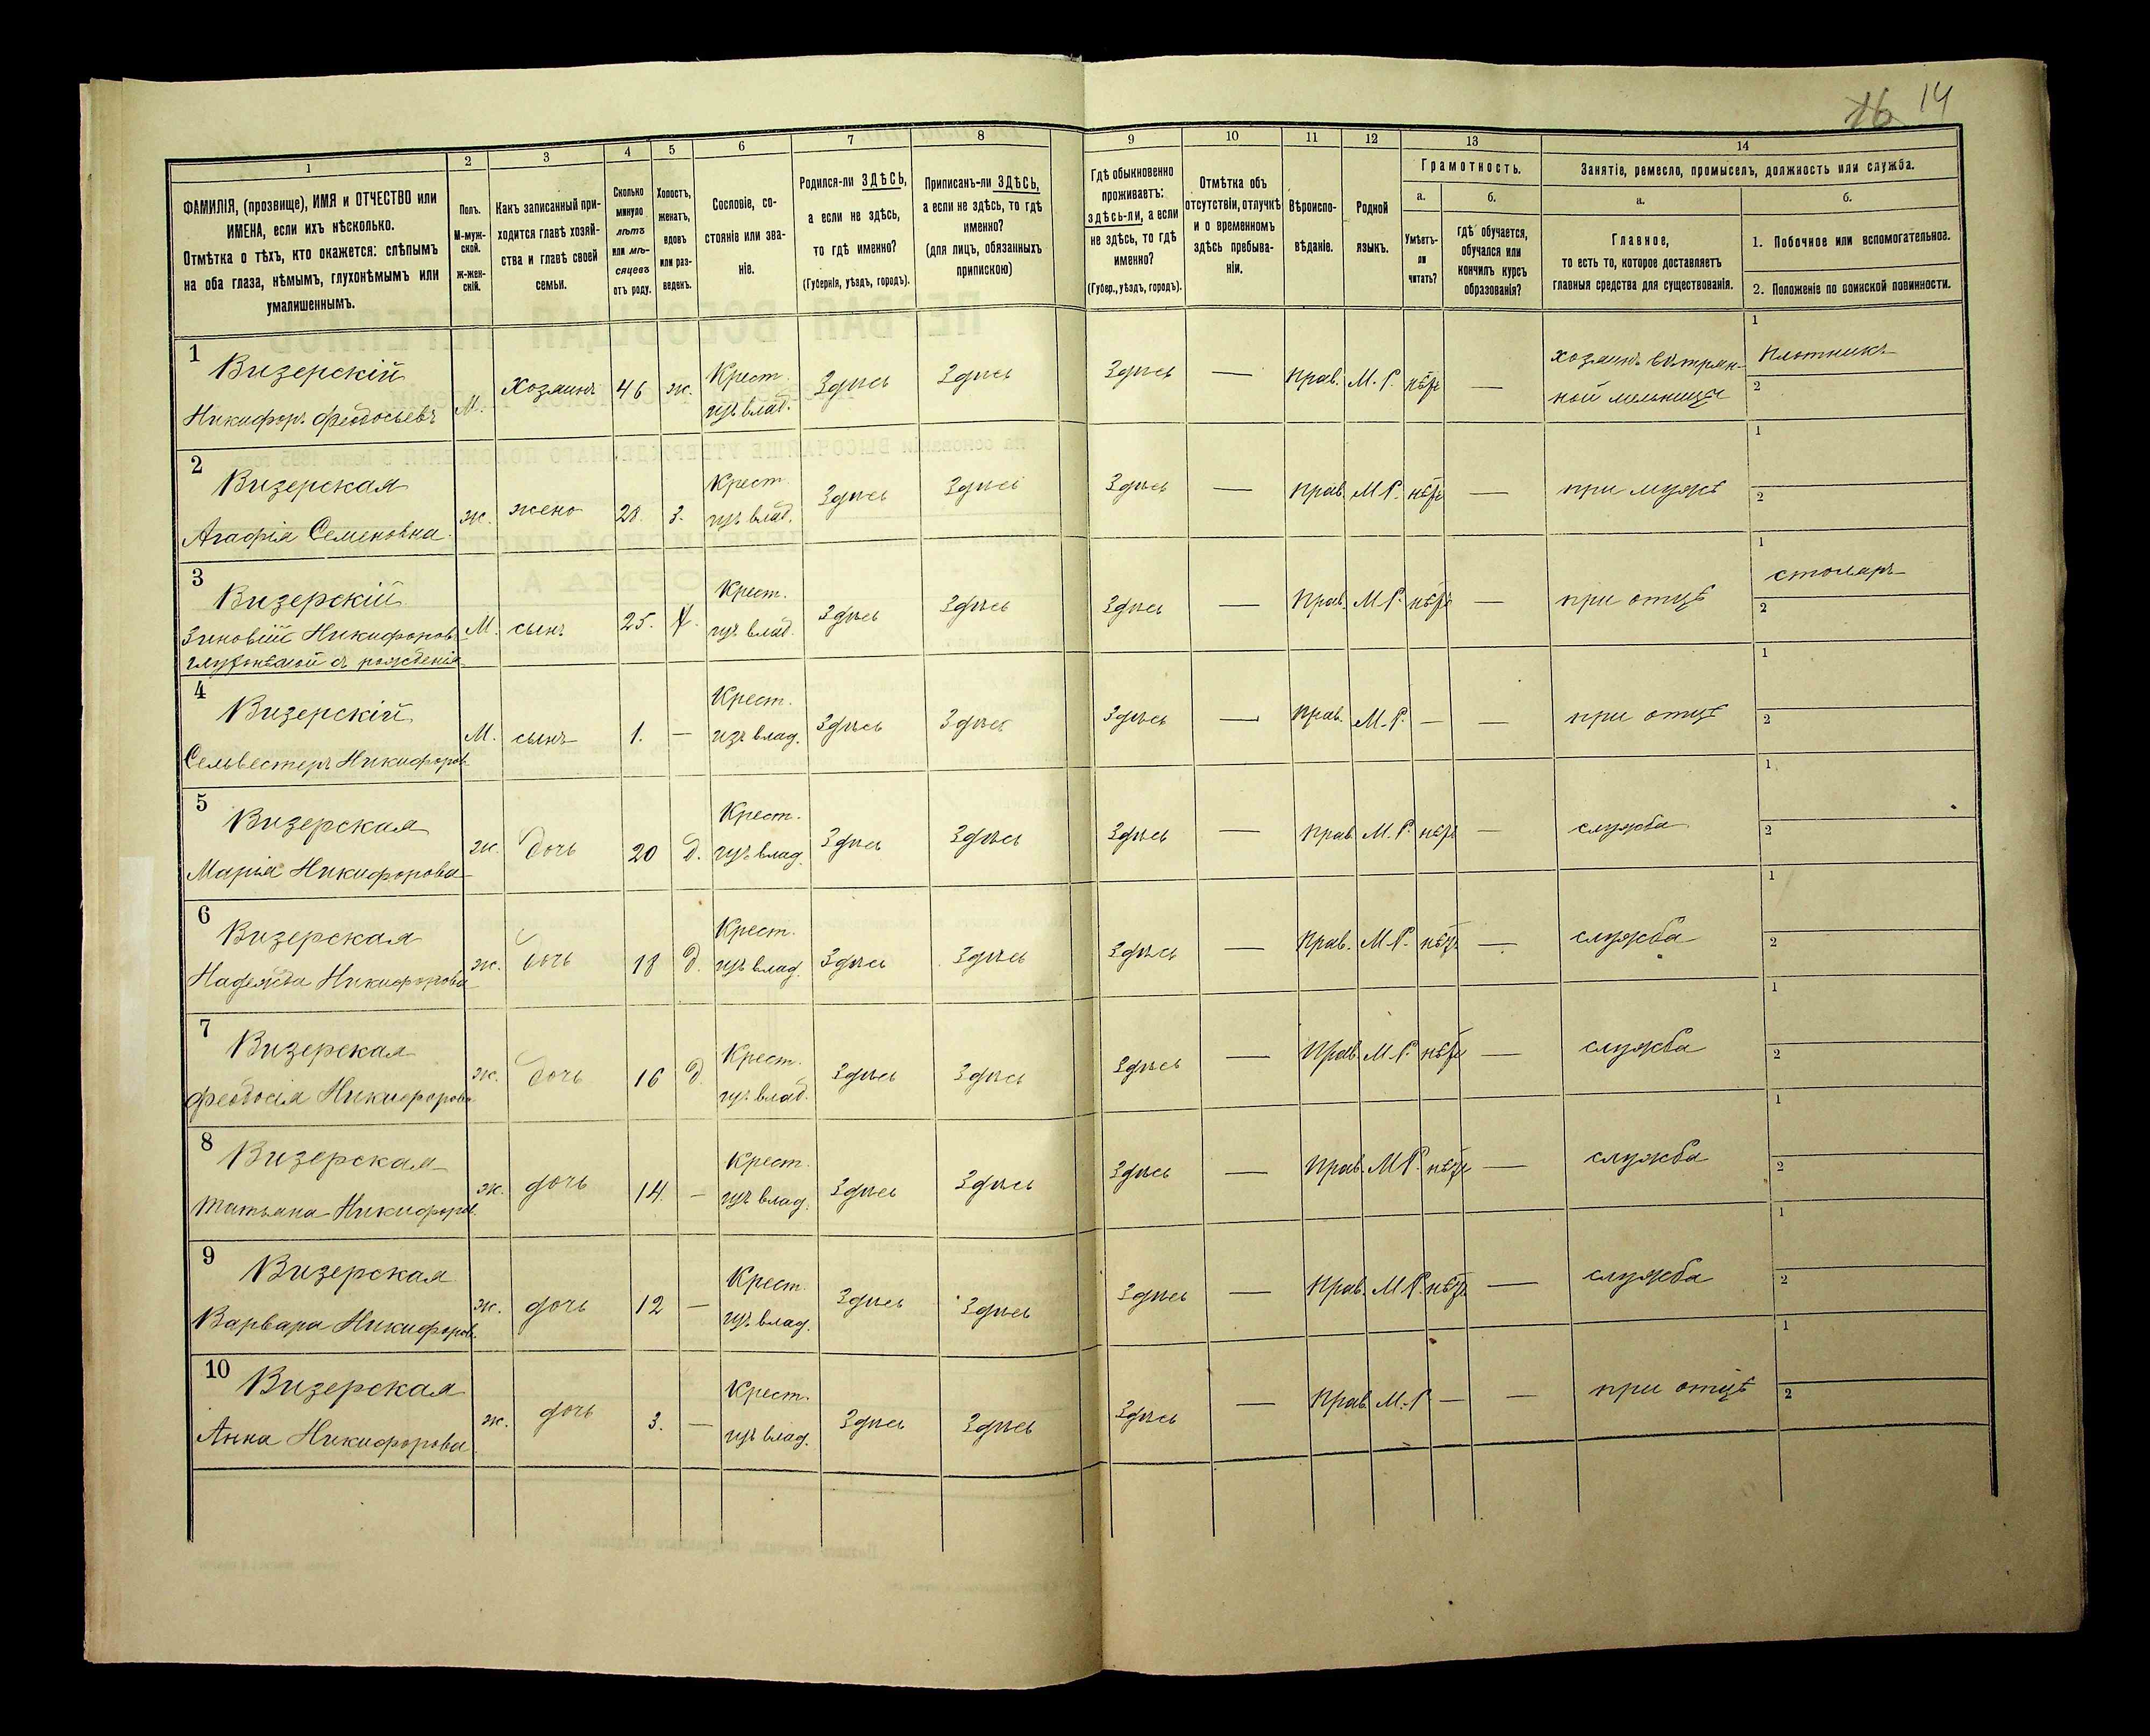 16 14
1 2 3 4 5 6 7 8 9 10 11 12 13 14
ФАМИЛІЯ, (прозвище), ИМЯ и ОТЧЕСТВО или
ИМЕНА, если ихъ нѣсколько.
Отмѣтка о тѣхъ, кто окажется: слѣпымъ
на оба глаза, нѣмымъ, глухонѣмымъ или
умалишеннымъ.
Полъ.
М-муж-
ской.
Ж-жен-
скій.
Какъ записанный при-
ходится главѣ хозяй-
ства и главѣ своей
семьи.
Сколько
минуло
лѣтъ
или мѣ-
сяцевъ
отъ роду.
Холостъ,
женатъ,
вдовъ
или раз-
веденъ.
Сословіе, со-
стояніе или зва-
ніе.
Родился-ли ЗДѢСЬ,
а если не здѣсь,
то гдѣ именно?
(Губернія, уѣздъ, городъ).
Приписанъ-ли ЗДѢСЬ,
а если не здѣсь, то гдѣ
именно?
(для лицъ, обязанныхъ
припискою)
Гдѣ обыкновенно
проживаетъ:
здѣсь-ли, а если
не здѣсь, то гдѣ
именно?
(Губер., уѣздъ, городъ).
Отмѣтка объ
отсутствіи, отлучкѣ
и о временномъ
здѣсь пребыва-
ніи.
Вѣроиспо-
вѣданіе.
Родной
языкъ.
Грамотность.
а.
Умѣетъ-
ли
читать?
б.
гдѣ обучается,
обучался или
кончилъ курсъ
образованія?
Занятіе, ремесло, промыселъ, должность или служба.
а.
Главное,
то есть то, которое доставляетъ
главныя средства для существованія.
б.
1. Побочное или вспомогательное.
2. Положеніе по воинской повинности.
1 Визерскій
Никифоръ Феодосьевъ
М. Хозяинъ 46 ж. Крест. изъ влад. Здѣсь Здѣсь Здѣсь — Прав. М. Р. нѣтъ —
хозяинъ вѣтрян-
ной мельницы
1 Плотникъ
2
2 Визерская
Агафія Семеновна
ж. жена 28. З. Крест. изъ влад. Здѣсь Здѣсь Здѣсь — Прав. М. Р. нѣтъ — при мужѣ
1
2
3 Визерскій
Зиновій Никифоров.
глухонѣмой съ рожденія
М. сынъ 25. Х. Крест. изъ влад. Здѣсь Здѣсь Здѣсь — Прав. М. Р. нѣтъ — при отцѣ
1 столяръ
2
4 Визерскій
Сельвестеръ Никифоров.
М. сынъ 1. — Крест. изъ влад. Здѣсь Здѣсь Здѣсь — Прав. М. Р. — — при отцѣ
1
2
5 Визерская
Марія Никифорова
ж. дочь 20 д. Крест. изъ влад. Здѣсь Здѣсь Здѣсь — Прав. М. Р. нѣтъ — служба
1
2
6 Визерская
Надежда Никифорова
ж. дочь 18 д. Крест. изъ влад. Здѣсь Здѣсь Здѣсь — Прав. М. Р. нѣтъ — служба
1
2
7 Визерская
Феодосія Никифорова
ж. дочь 16 д. Крест. изъ влад. Здѣсь Здѣсь Здѣсь — Прав. М. Р. нѣтъ — служба
1
2
8 Визерская
Татьяна Никифоров.
ж. дочь 14. — Крест. изъ влад. Здѣсь Здѣсь Здѣсь — Прав. М. Р. нѣтъ — служба
1
2
9 Визерская
Варвара Никифоров.
ж. дочь 12 — Крест. изъ влад. Здѣсь Здѣсь Здѣсь — Прав. М. Р. нѣтъ — служба
1
2
10 Визерская
Анна Никифорова
ж. дочь 3. — Крест. изъ влад. Здѣсь Здѣсь Здѣсь — Прав. М. Р. — — при отцѣ
1
2